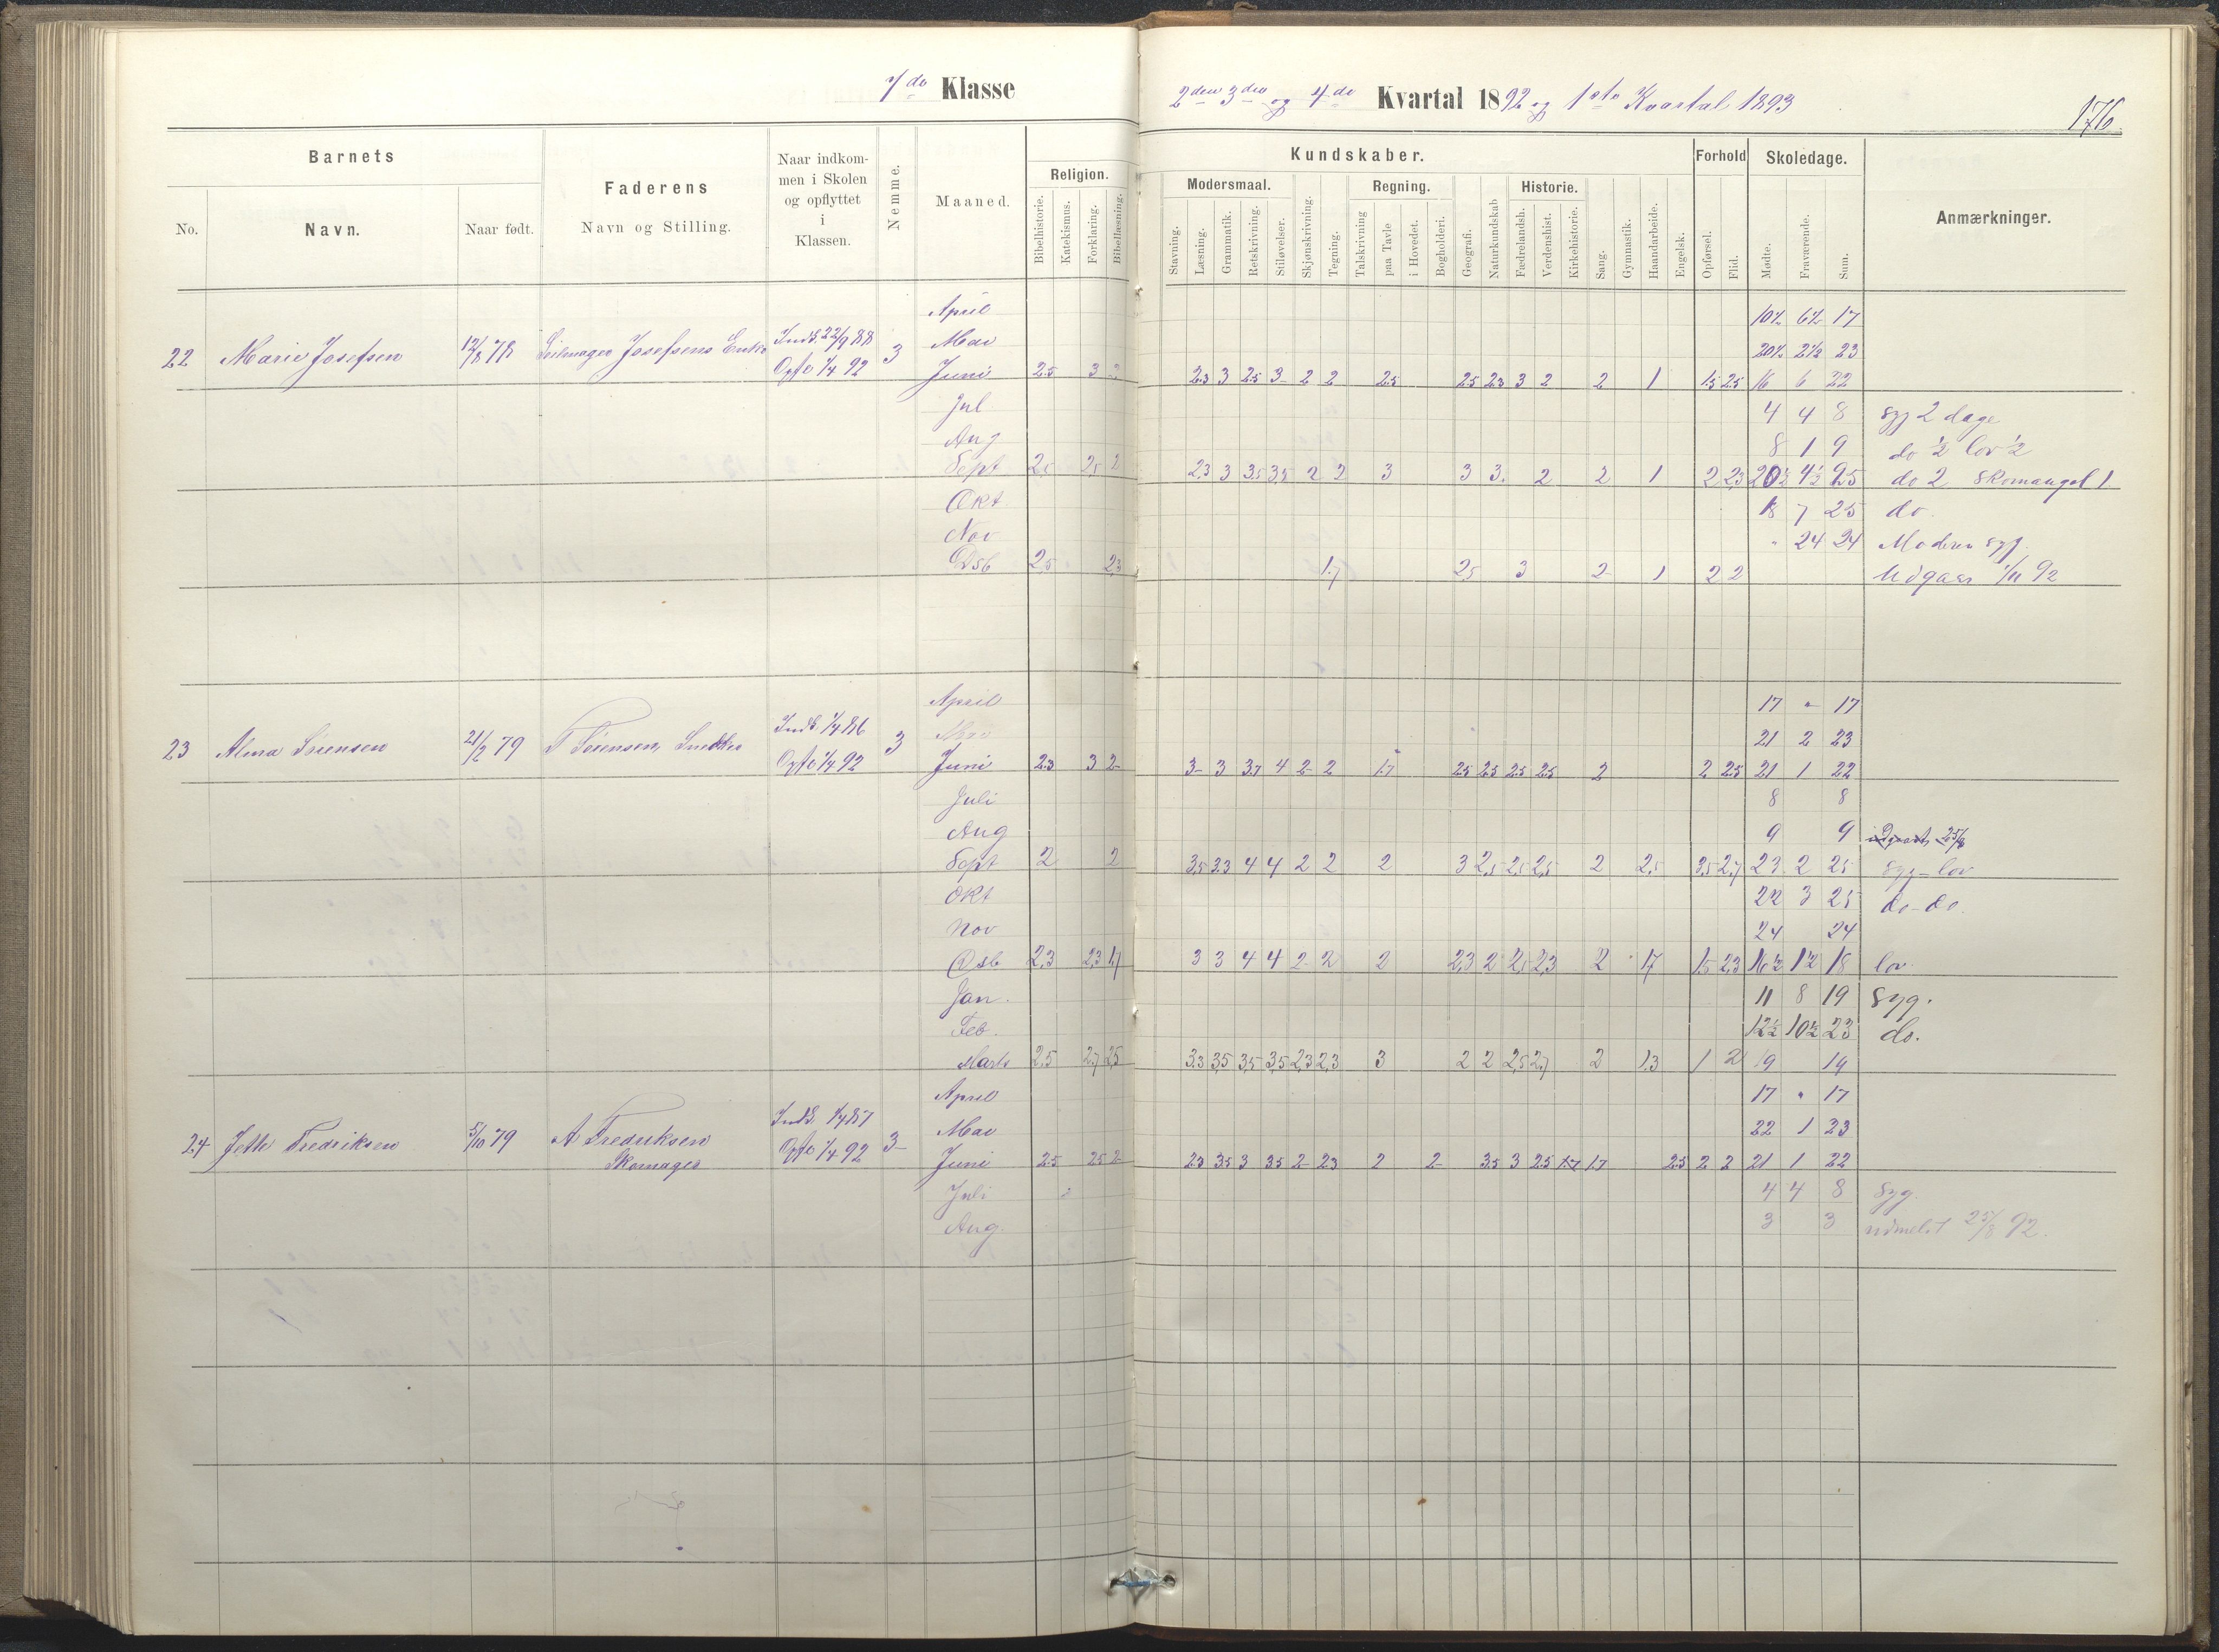 7de Klasse
2den 3die og 4de Kvartal 1892 og 1ste Kvartal 1893
176.
Barnets
Faderens
Naar indkom-
men i Skolen
og opflyttet
i
Klassen.
Nemme.
Maaned.
Religion.
Kundskaber.
Forhold
Skoledage.
Anmærkninger.
Modersmaal.
Regning.
Historie.
No.
Navn.
Naar født.
Navn og Stilling.
Bibelhistorie.
Katekismus.
Forklaring.
Bibellæsning.
Stavning.
Læsning.
Grammatik.
Retskrivning.
Stiløvelser.
Skjønskrivning.
Tegning.
Talskrivning
paa Tavle
i Hovedet.
Bogholderi.
Geografi.
Naturkundskab
Fædrelandsh.
Verdenshist.
Kirkehistorie.
Sang.
Gymnastik.
Haandarbeide.
Engelsk.
Opførsel.
Flid.
Mødte.
Fraværende.
Sum.
April 10½ 6½ 17
22 Marie Josefsen 12/8 78 Josefsens Enke Inds. 22/9 88 3 Mai 20½ 2½ 23
Opfl 1/4 92 Juni 2.5 3 2 2.3 3 2.5 3- 2 2 2.5 2.5 2.3 3 2 2 1 1.5 2.5 16 6 22
Jul 4 4 8 syg 2 dage
Aug 8 1 9 do ½ lov ½
Sept 2,5 2,5 2 2,3 3 3,5 3,5 2 2 3 3 3. 2 2 1 2 2,3 20½ 4½ 25 do 2 Skomangel 1
Okt 18 7 25 do.
Nov " 24 24 Moderen syg
Dsb 2,5 2,3 1.7 2,5 3 2 1 2 2 Udgaar 1/11 92
April 17 " 17
23 Alma Sørensen 21/2 79 T Sørensen, Snedker Inds 1/4 86 3 Mai 21 2 23
Opfl 1/4 92 Juni 2.3 3 2- 3- 3 3.7 4 2- 2 1.7 2.5 2.5 2.5 2.5 2 2 2.5 21 1 22
Juli 8 8
Aug 9 9 25/8
Sept 2 2 3,5 3.3 4 4 2 2 2 3 2,5 2,5 2,5 2 2,5 3,5 2,7 23 2 25 syg - lov
Okt 22 3 25 do - do.
Nov 24 24
Dsb 2,3 2,3 1,7 3 3 4 4 2 2 2 2,3 2 2,5 2,3 2 1,7 1,5 2,3 16½ 1½ 18 lov.
Jan. 11 8 19 Syg.
Feb. 12½ 10½ 23 do.
Marts 2.5 2.7 2,5 3.3 3,5 3,5 3,5 2,3 2,3 3 2 2 2,5 2,7 2 1.3 1 2 19 19
April 17 " 17
24 Jette Fredriksen 5/10 79 A Fredriksen Inds 1/4 87 3- Mai 22 1 23
Skomager Opfl 1/4 92 Juni 2.5 2.5 2- 2.3 3.5 3 3.5 2- 2.3 2 2- 3.5 3 2.5 1.7 1.7 2.5 2 2 21 1 22
Juli 4 4 8 Syg.
Aug. 3 3 udmeldt 25/8 92.